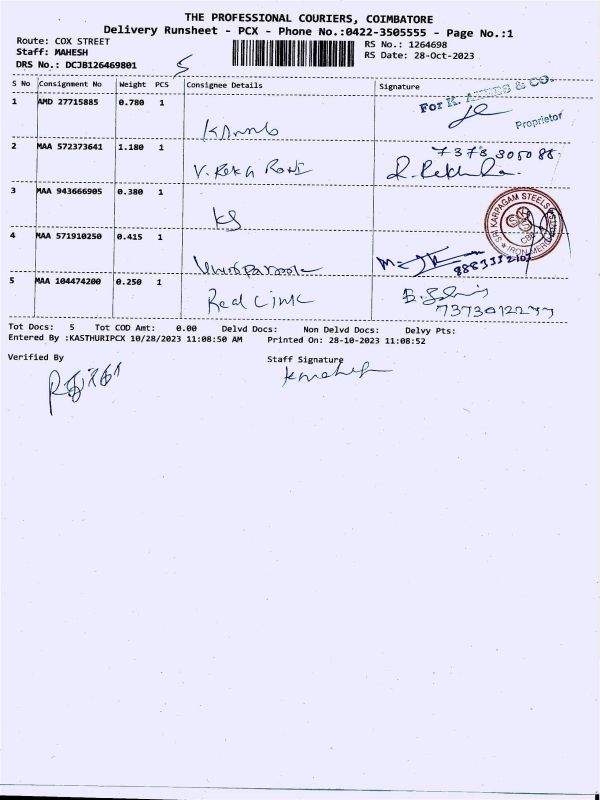 THE PROFESSIONAL COURIERS, COIMBATORE
Delivery Runsheet - PCX - Phone No.:0422-3505555 - Page No.:1
Route: COX STREET
RS No.: 1264698
Staff: MAHESH
RS Date: 28-Oct-2023
DRS No.: DCJB126469801
5
S No Consignment No Weight PCS Consignee Details Signature
1 AMD 27715885 0.780 1
For K. & CO.
Proprietor
2 MAA 572373641 1.180 1
V. Rekh Rani
7373 305088
R. Rekha
3 MAA 943666905 0.380 1
KS
SRI KARPAGAM STEELS
IRON MER
4 MAA 571910250 0.415 1
5 MAA 104474200 0.250 1
Red Link
7373012277
Tot Docs: 5 Tot COD Amt: 0.00 Delvd Docs: Non Delvd Docs: Delvy Pts:
Entered By :KASTHURIPCX 10/28/2023 11:08:50 AM Printed On: 28-10-2023 11:08:52
Verified By
Staff Signature